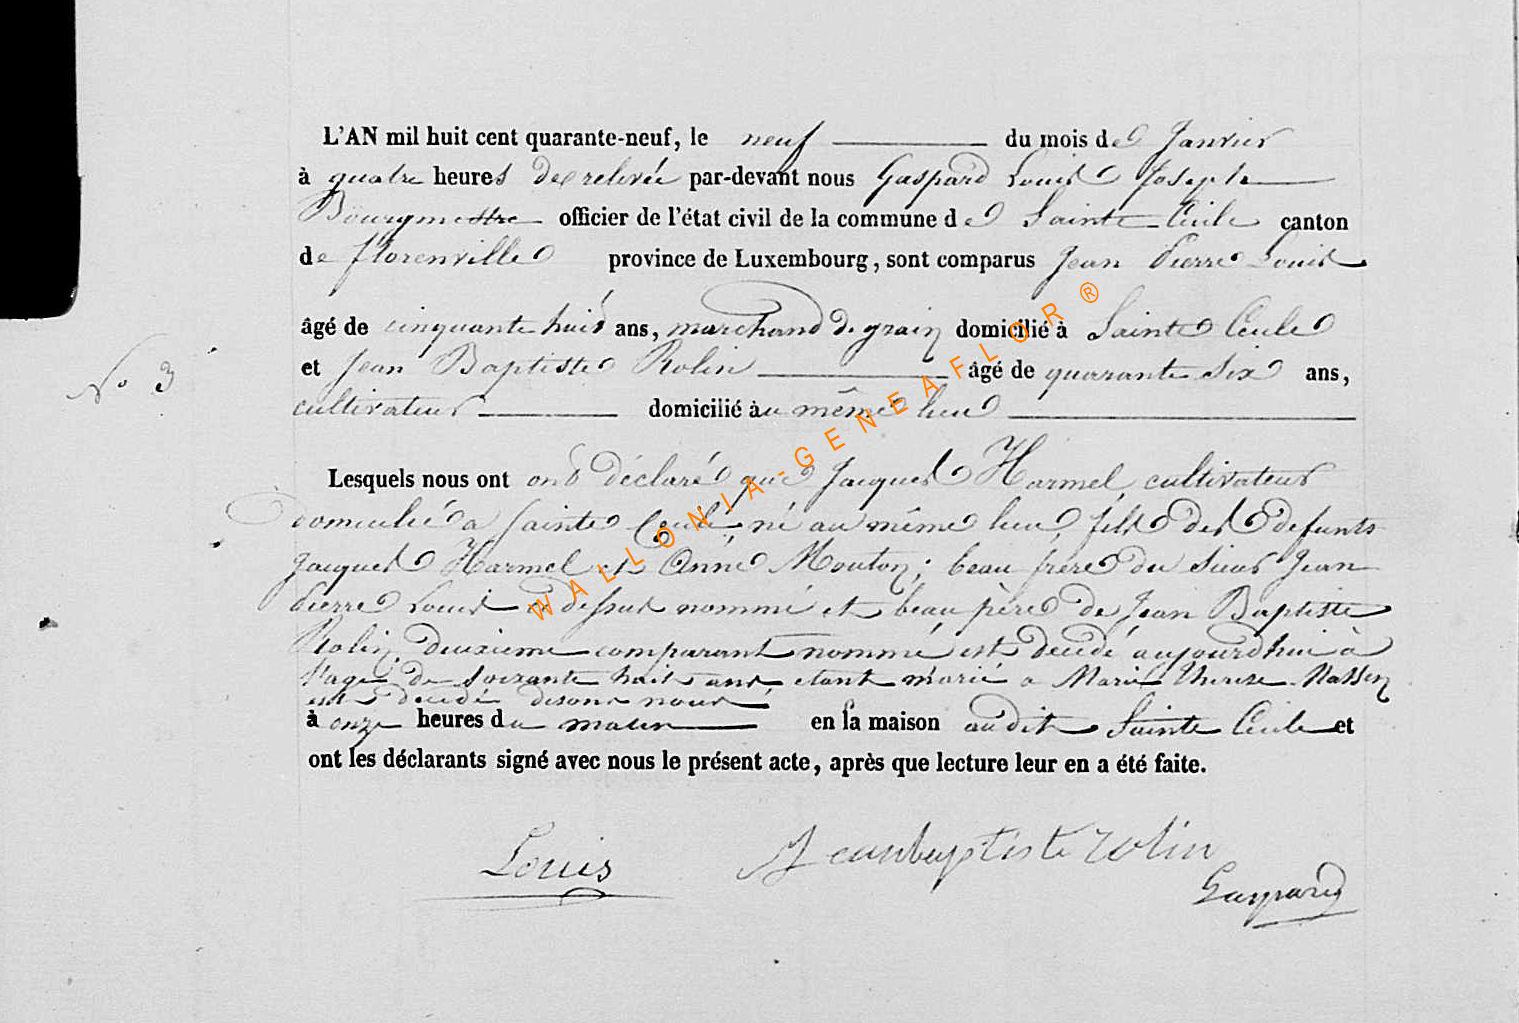 L'AN mil huit cent quarante-neuf, le neuf du mois de Janvier
à quatre heures de relevée par-devant nous Gaspard Louis Joseph
Bourgmestre officier de l'état civil de la commune de Sainte Cécile canton
de florenville province de Luxembourg, sont comparus Jean Pierre Louis
âgé de cinquante huit ans, marchand de grain domicilié à Sainte Cécile
et Jean Baptiste Rolin âgé de quarante six ans,
No 3
cultivateur domicilié au même lieu
Lesquels nous ont ont déclaré que Jacques Harmel, cultivateur
domicilié a Sainte Cécile, né au même lieu, fils des defunts
Jacques Harmel et Anne Mouton; beau frère du Sieur Jean
Pierre Louis dessus nommé et beau père de Jean Baptiste
Rolin deuxieme comparant nommé, est décédé aujourdhui à
l'age de soixante huit ans, etant marié a Marie Therese Massin
est décédé disons nous
à onze heures du matin en la maison audit Sainte Cécile et
ont les déclarants signé avec nous le présent acte, après que lecture leur en a été faite.
Louis
Jeanbaptiste rolin
Gaspard
WALLONIA-GENEAFLOR ®